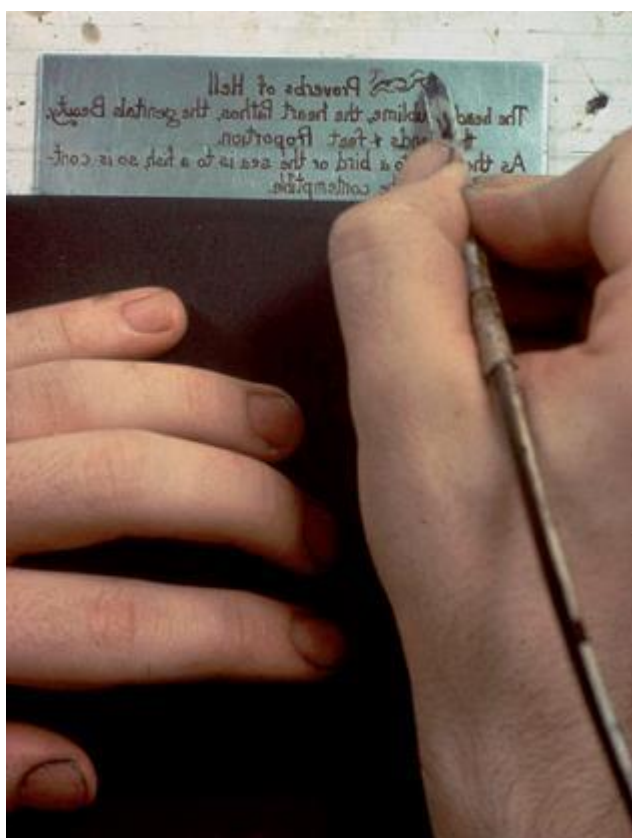 Proverbs of Hell
The head the heart Pathos, the genitals Beauty,
& feet Proportion.
As the to a bird or the sea is to a fish, so is cont-
contemptible.